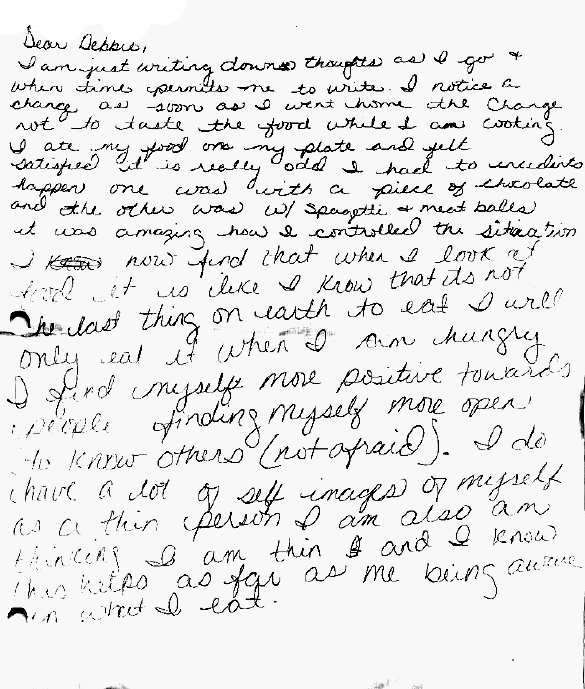 Dear Debbie,
I am just writing down thoughts as I go &
when time permits me to write. I notice a
change as soon as I went home the Change
not to taste the food while I am cooking.
I ate my food on my plate and felt
satisfied it is really odd I had to incidints
happen one was with a piece of chocolate
and the other was w/ Spagetti & meat balls
it was amazing how I controlled the sitiration
I now find that when I look at
food it is like I know that its not
the last thing on earth to eat I will
only eat it when I am hungry
I find myself more positive towards
people finding myself more open
to know others (not afraid). I do
have a lot of self images of myself
as a thin person I am also am
thinking I am thin and I know
this helps as far as me being aware
in what I eat.